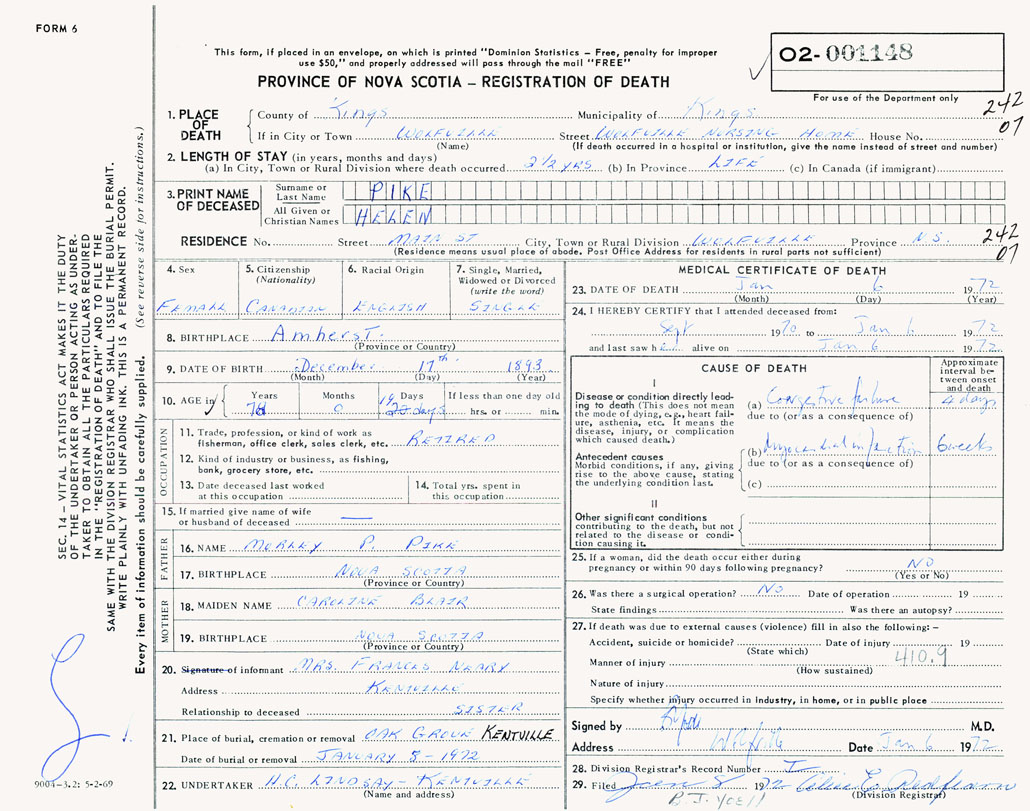 FORM 6
This form, if placed in an envelope, on which is printed "Dominion Statistics – Free, penalty for improper
use $50," and properly addressed will pass through the mail "FREE"
PROVINCE OF NOVA SCOTIA – REGISTRATION OF DEATH
02- 001148
For use of the Department only
242
07
1. PLACE OF DEATH
County of Kings Municipality of Kings
If in City or Town WOLFVILLE Street WOLFVILLE NURSING HOME House No.
(Name) (If death occurred in a hospital or institution, give the name instead of street and number)
2. LENGTH OF STAY (in years, months and days)
(a) In City, Town or Rural Division where death occurred 2 1/2 YRS (b) In Province LIFE (c) In Canada (if immigrant)
3. PRINT NAME OF DECEASED
Surname or Last Name PIKE
All Given or Christian Names HELEN
RESIDENCE No. Street MAIN ST City, Town or Rural Division WOLFVILLE Province N.S.
(Residence means usual place of abode. Post Office Address for residents in rural parts not sufficient)
242
07
4. Sex
FEMALE
5. Citizenship
(Nationality)
CANADIAN
6. Racial Origin
ENGLISH
7. Single, Married,
Widowed or Divorced
(write the word)
SINGLE
8. BIRTHPLACE Amherst.
(Province or Country)
9. DATE OF BIRTH December 17th 1893
(Month) (Day) (Year)
10. AGE in Years Months Days If less than one day old
78 0 19 days hrs. or min.
OCCUPATION
11. Trade, profession, or kind of work as
fisherman, office clerk, sales clerk, etc. RETIRED
12. Kind of industry or business, as fishing,
bank, grocery store, etc.
13. Date deceased last worked
at this occupation
14. Total yrs. spent in
this occupation
15. If married give name of wife
or husband of deceased —
FATHER
16. NAME MORLEY P. PIKE
17. BIRTHPLACE NOVA SCOTIA
(Province or Country)
MOTHER
18. MAIDEN NAME CAROLINE BLAIR
19. BIRTHPLACE NOVA SCOTIA
(Province or Country)
20. Signature of informant MRS. FRANCES NEARY
Address KENTVILLE
Relationship to deceased SISTER
21. Place of burial, cremation or removal OAK GROVE KENTVILLE
Date of burial or removal JANUARY 8 - 1972
22. UNDERTAKER H.C. LINDSAY – KENTVILLE
(Name and address)
MEDICAL CERTIFICATE OF DEATH
23. DATE OF DEATH Jan 6 1972
(Month) (Day) (Year)
24. I HEREBY CERTIFY that I attended deceased from:
Sept 1970 to Jan 6 1972
and last saw her alive on Jan 6 1972
CAUSE OF DEATH
Approximate
interval be-
tween onset
and death
I
Disease or condition directly lead-
ing to death (This does not mean
the mode of dying, e.g., heart fail-
ure, asthenia, etc. It means the
disease, injury, or complication
which caused death.)
(a) Congestive failure 4 days
due to (or as a consequence of)
Antecedent causes
Morbid conditions, if any, giving
rise to the above cause, stating
the underlying condition last.
(b) Myocardial infarction 6 weeks
due to (or as a consequence of)
(c)
II
Other significant conditions
contributing to the death, but not
related to the disease or condi-
tion causing it.
25. If a woman, did the death occur either during
pregnancy or within 90 days following pregnancy? NO
(Yes or No)
26. Was there a surgical operation? NO Date of operation 19
State findings Was there an autopsy?
27. If death was due to external causes (violence) fill in also the following: –
Accident, suicide or homicide? Date of injury 19
(State which)
Manner of injury 410.9
(How sustained)
Nature of injury
Specify whether injury occurred in industry, in home, or in public place
Signed by M.D.
Address Wolfville Date Jan 6 1972
28. Division Registrar's Record Number I
29. Filed 1972
(Division Registrar)
SEC. 14 – VITAL STATISTICS ACT MAKES IT THE DUTY
OF THE UNDERTAKER OR PERSON ACTING AS UNDER-
TAKER TO OBTAIN ALL THE PARTICULARS REQUIRED
IN THE "REGISTRATION OF DEATH" AND TO FILE THE
SAME WITH THE DIVISION REGISTRAR WHO SHALL ISSUE THE BURIAL PERMIT.
WRITE PLAINLY WITH UNFADING INK. THIS IS A PERMANENT RECORD.
Every item of information should be carefully supplied. (See reverse side for instructions.)
9004-3.2: 5-2-69